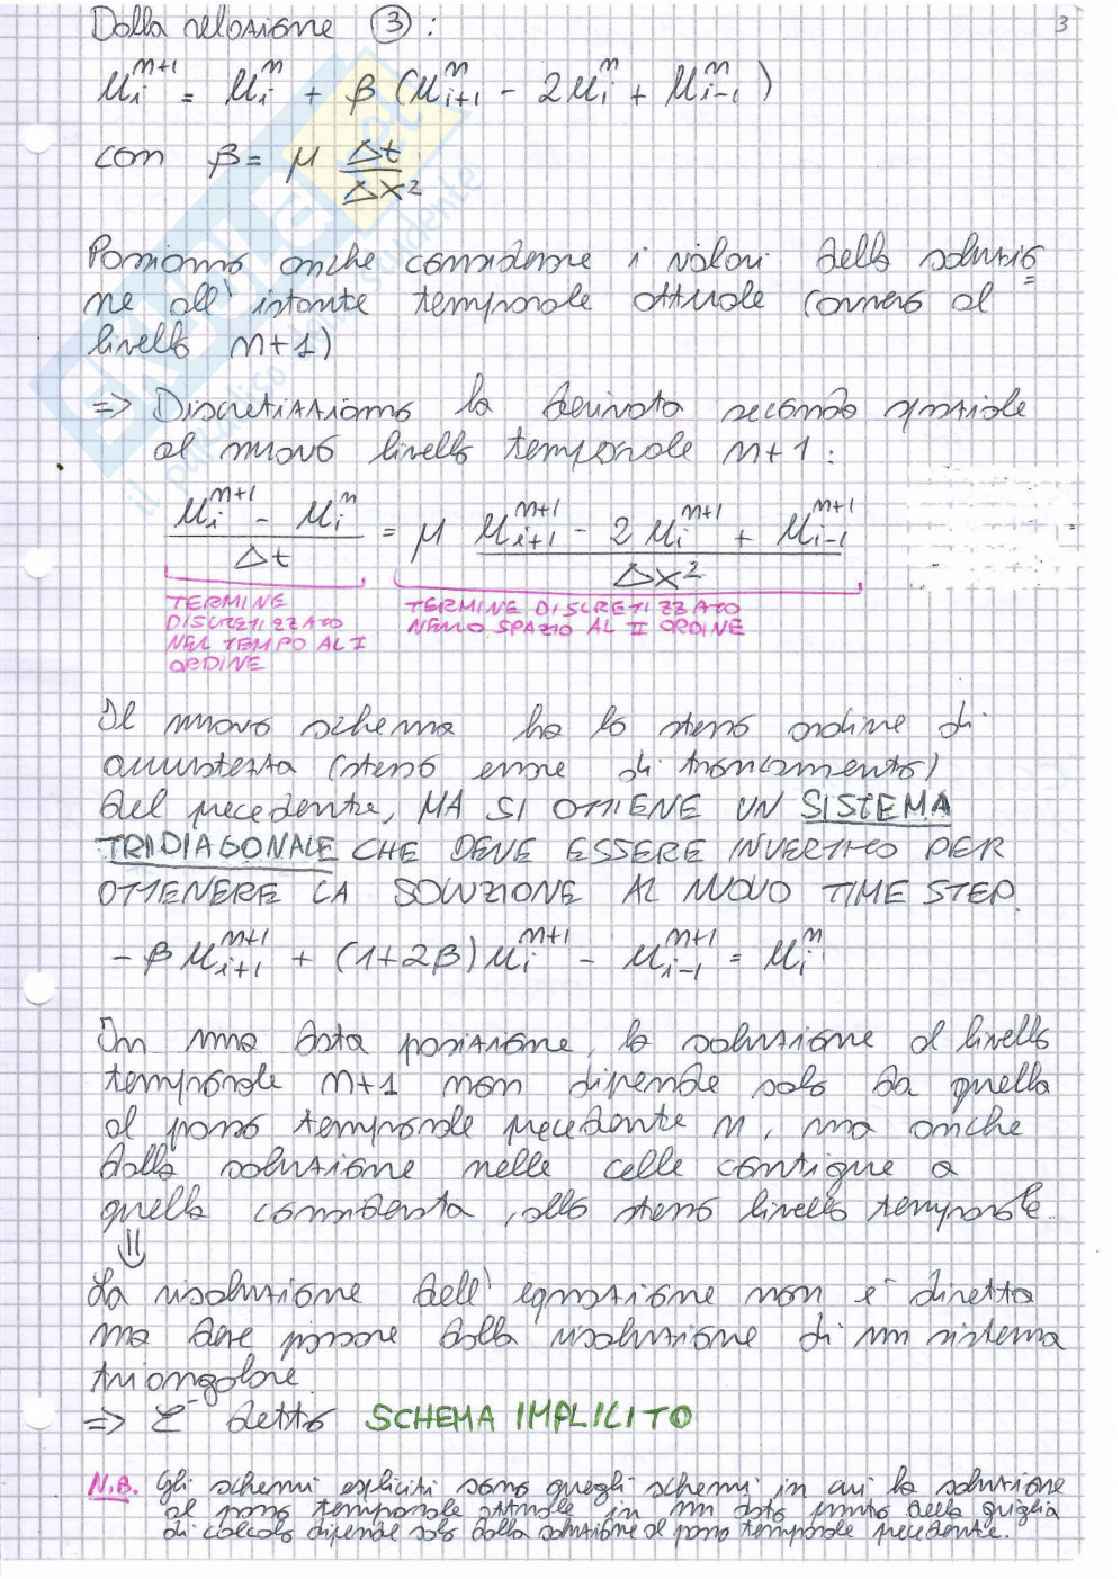 3
Dalla relazione ③ :
u_i^{n+1} = u_i^n + β (u_{i+1}^n - 2u_i^n + u_{i-1}^n)
con β = μ Δt/Δx²
Possiamo anche considerare i valori della soluzio
ne all' istante temporale attuale (ovvero al
livello n+1)
=> Discretizziamo la derivata seconda spaziale
al nuovo livello temporale n+1 :
(u_i^{n+1} - u_i^n)/Δt = μ (u_{i+1}^{n+1} - 2u_i^{n+1} + u_{i-1}^{n+1})/Δx²
TERMINE
DISCRETIZZATO
NEL TEMPO AL I
ORDINE
TERMINE DISCRETIZZATO
NELLO SPAZIO AL II ORDINE
Il nuovo schema ha lo stesso ordine di
accuratezza (stesso errore di troncamento)
del precedente, MA SI OTTIENE UN SISTEMA
TRIDIAGONALE CHE DEVE ESSERE INVERTITO PER
OTTENERE LA SOLUZIONE AL NUOVO TIME STEP.
- β u_{i+1}^{n+1} + (1+2β) u_i^{n+1} - u_{i-1}^{n+1} = u_i^n
In una data posizione, la soluzione al livello
temporale n+1 non dipende solo da quella
al passo temporale precedente n, ma anche
dalla soluzione nelle celle contigue a
quella considerata, allo stesso livello temporale.
⇓
La risoluzione dell' equazione non è diretta
ma deve passare dalla risoluzione di un sistema
triangolare
=> È detto SCHEMA IMPLICITO
N.B. Gli schemi espliciti sono quegli schemi in cui la soluzione
al passo temporale attuale in un dato punto della griglia
di calcolo dipende solo dalla soluzione al passo temporale precedente.